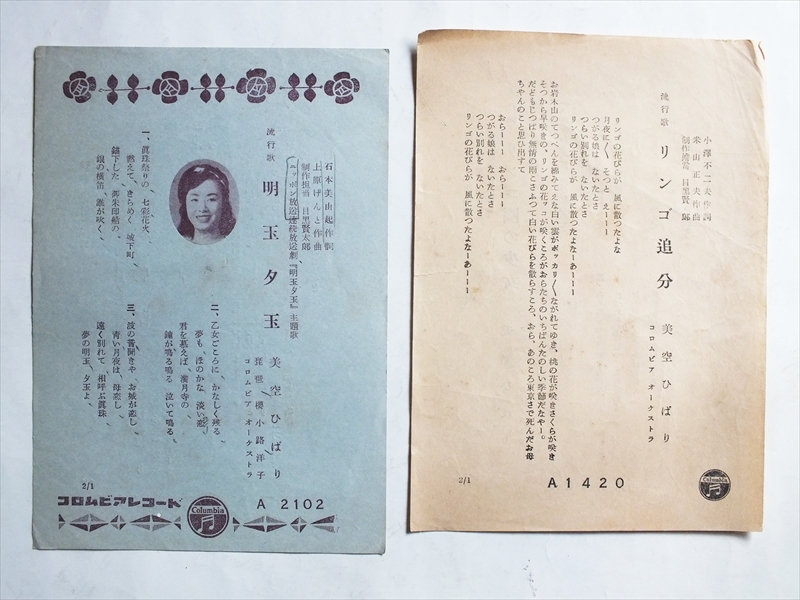 石本美由起作詞
上原げんと作曲
制作担当 目黒賢太郎
(ニッポン放送連続放送劇『明玉夕玉』主題歌
流行歌 明玉夕玉 美空ひばり
琵琶 櫻小路洋子
コロムビア オーケストラ
一、眞珠祭りの、七彩花火
燃えて、きらめく 城下町
鎧下した、御朱印船の、
銀の横笛 誰が吹く、
二、乙女ごころに、かなしく残る
夢も、ほのかな、淡い恋
君を慕えば、満月寺の、
鐘が鳴る鳴る 泣いて鳴る
三、波の音聞きや、お城が恋し
青い月夜は、母恋し
遠く別れて 相呼ぶ眞珠
夢の明玉、夕玉よ、
2/1
コロムビアレコード
Columbia
A 2102
小澤不二夫作詞
米山正夫作曲
制作担当 目黒賢太郎
流行歌 リンゴ追分 美空ひばり
コロムビア オーケストラ
リンゴの花びらが 風に散つたよな
月夜に 〳〵 そつと えーーー
つがる娘は ないたとさ
つらい別れを ないたとさ
リンゴの花びらが 風に散つたよなーあーーー
お岩木山のてつぺんを綿みてえな白い雲がポッカリ〳〵ながれてゆき、桃の花が咲きさくらが咲き
そつから早咲きの、リンゴの花ッコが咲くころがおらたちのいちばんたのしい季節だなやー。
だどもじつぱり無情の雨こさふつて白い花びらを散らすころ、おら、あのころ東京さで死んだお母
ちゃんのこと思ひ出すて
おらーー おらーーー
つがる娘は ないたとさ
つらい別れを ないたとさ
リンゴの花びらが 風に散つたよなーあーーー
2/1
A1420
Columbia